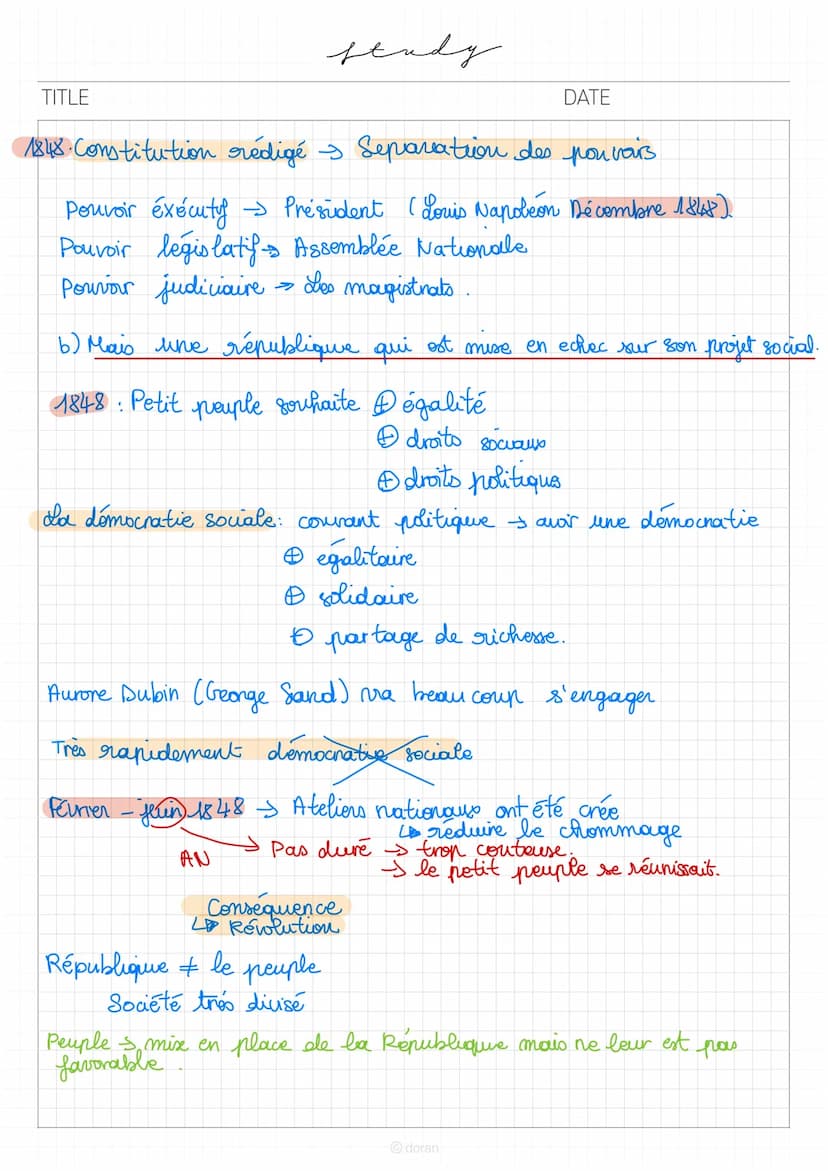 study
TITLE DATE
1848. Constitution rédigé → Separation des pouvoirs
Pouvoir éxécutif → Président (Louis Napoléon Décembre 1848).
Pouvoir législatif → Assemblée Nationale
Pouvoir judiciaire → Les magistrats.
b) Mais une république qui est mise en echec sur son projet social.
1848 : Petit peuple souhaite ⊕ égalité
⊕ droits sociaux
⊕ droits politiqus
La démocratie sociale : courant politique → avoir une démocratie
⊕ égalitaire
⊕ solidaire
⊕ partage de richesse.
Aurore Dubin (George Sand) va beaucoup s'engager
Très rapidement démocratie sociale
Février - juin 1848 → Ateliers nationaux ont été crée
↳ réduire le chommage
AN Pas duré → trop couteuse.
→ le petit peuple se réunissait.
Conséquence
↳ Révolution
République ≠ le peuple
Société très divisé
Peuple → mix en place de la République mais ne leur est pas
favorable.
© doran